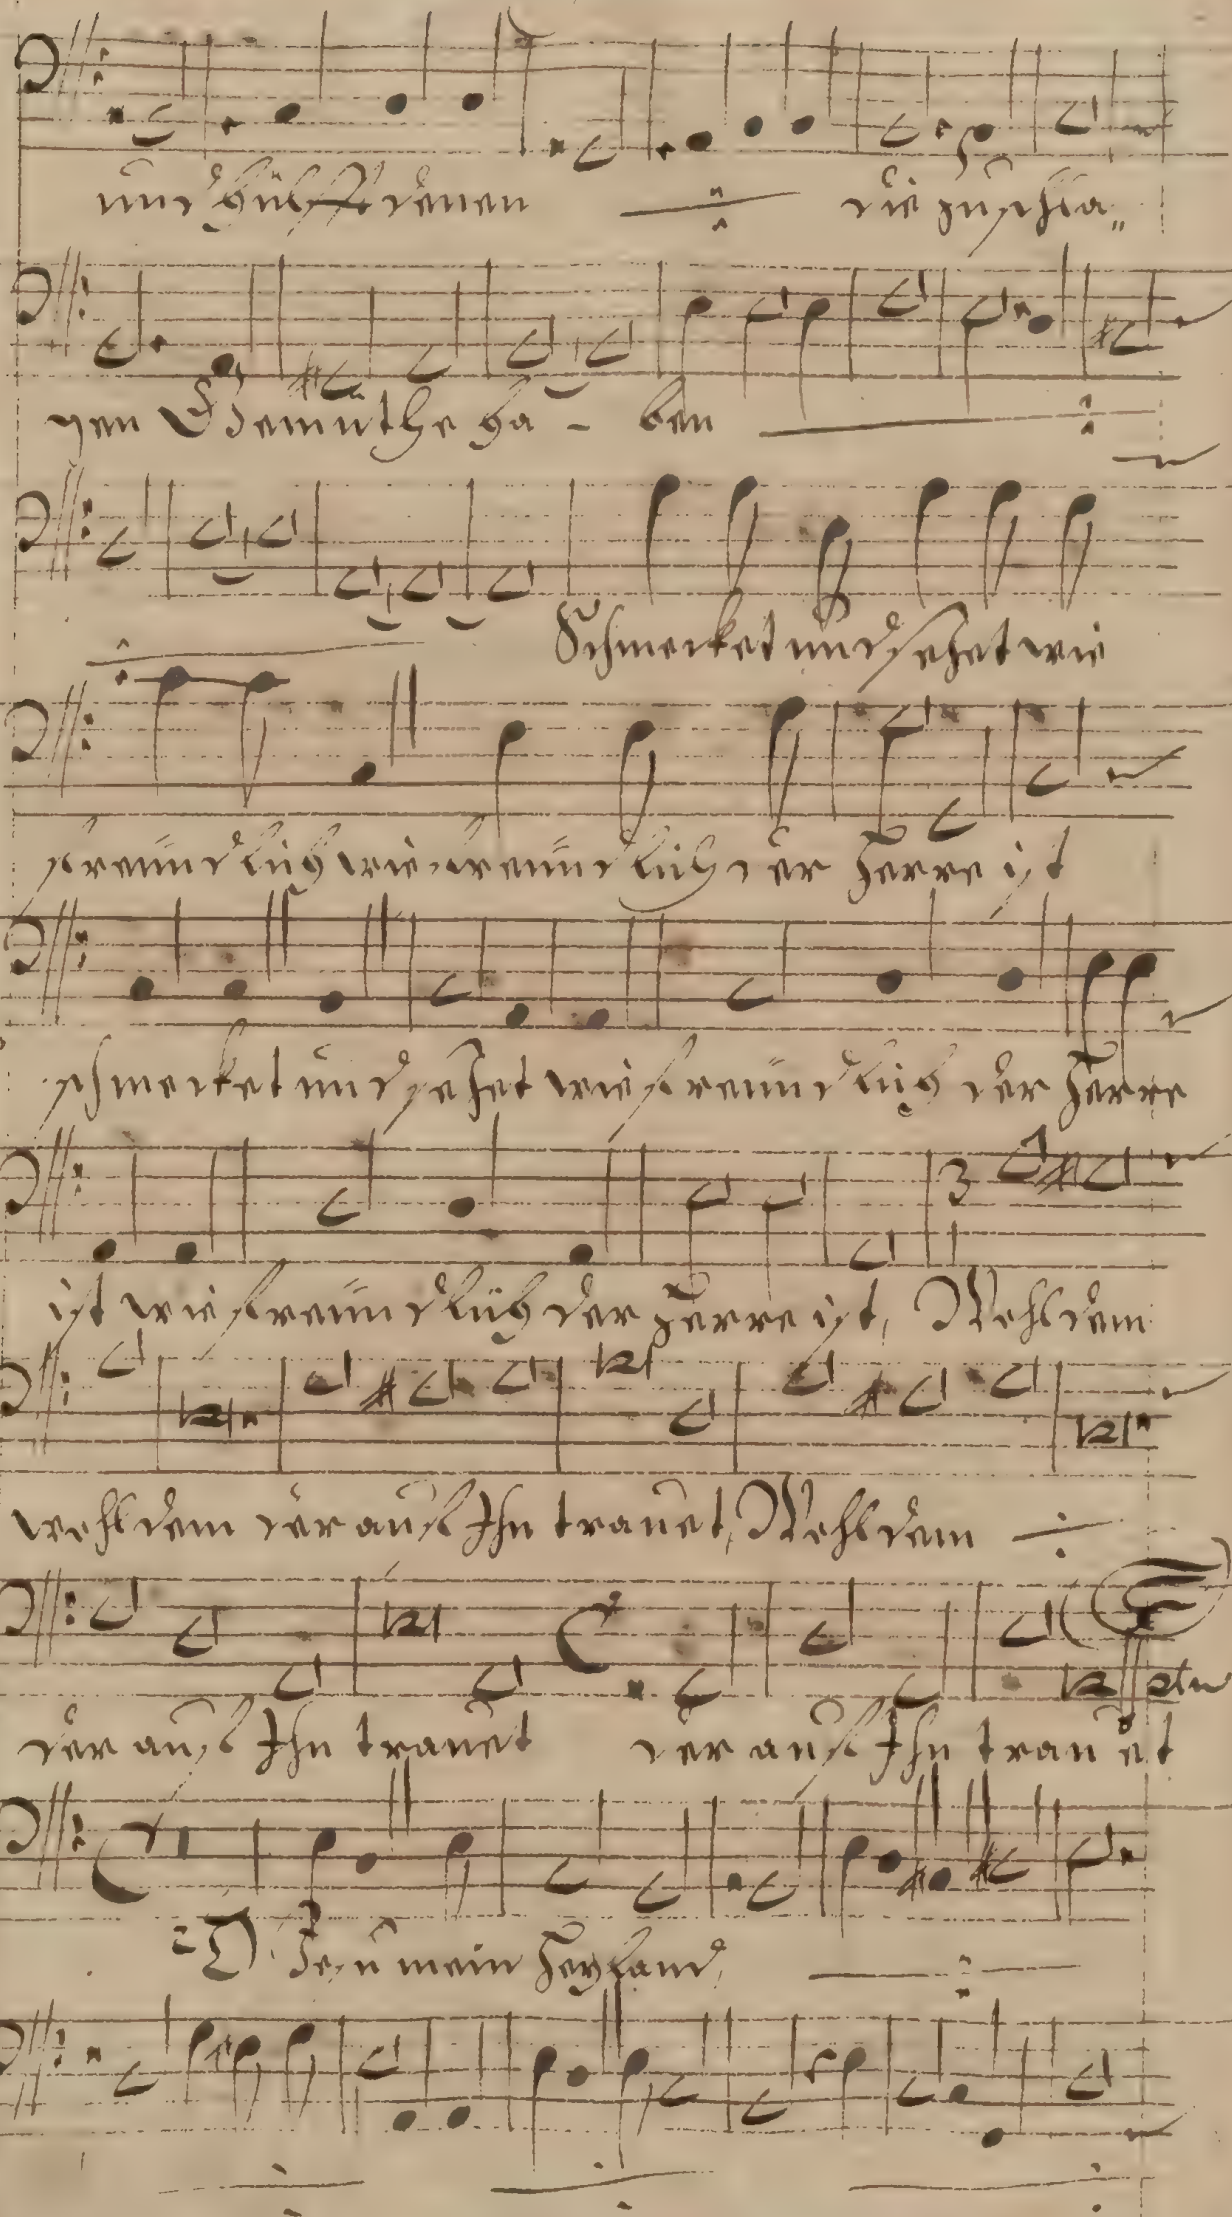 und hülfft denen ÷ die zuschla„
gen Gemüthe ha - ben ÷
Schmecket und sehet wie
freundlich wie freundlich der Herre ist
schmecket und sehet wie freundlich der Herre
ist wie freundlich der Herre ist, Wohl dem
wohl dem der auf Ihn trauet, Wohl dem ÷
der auf Ihn trauet der auf Ihn trauet
O Jesu mein Heyland, ÷